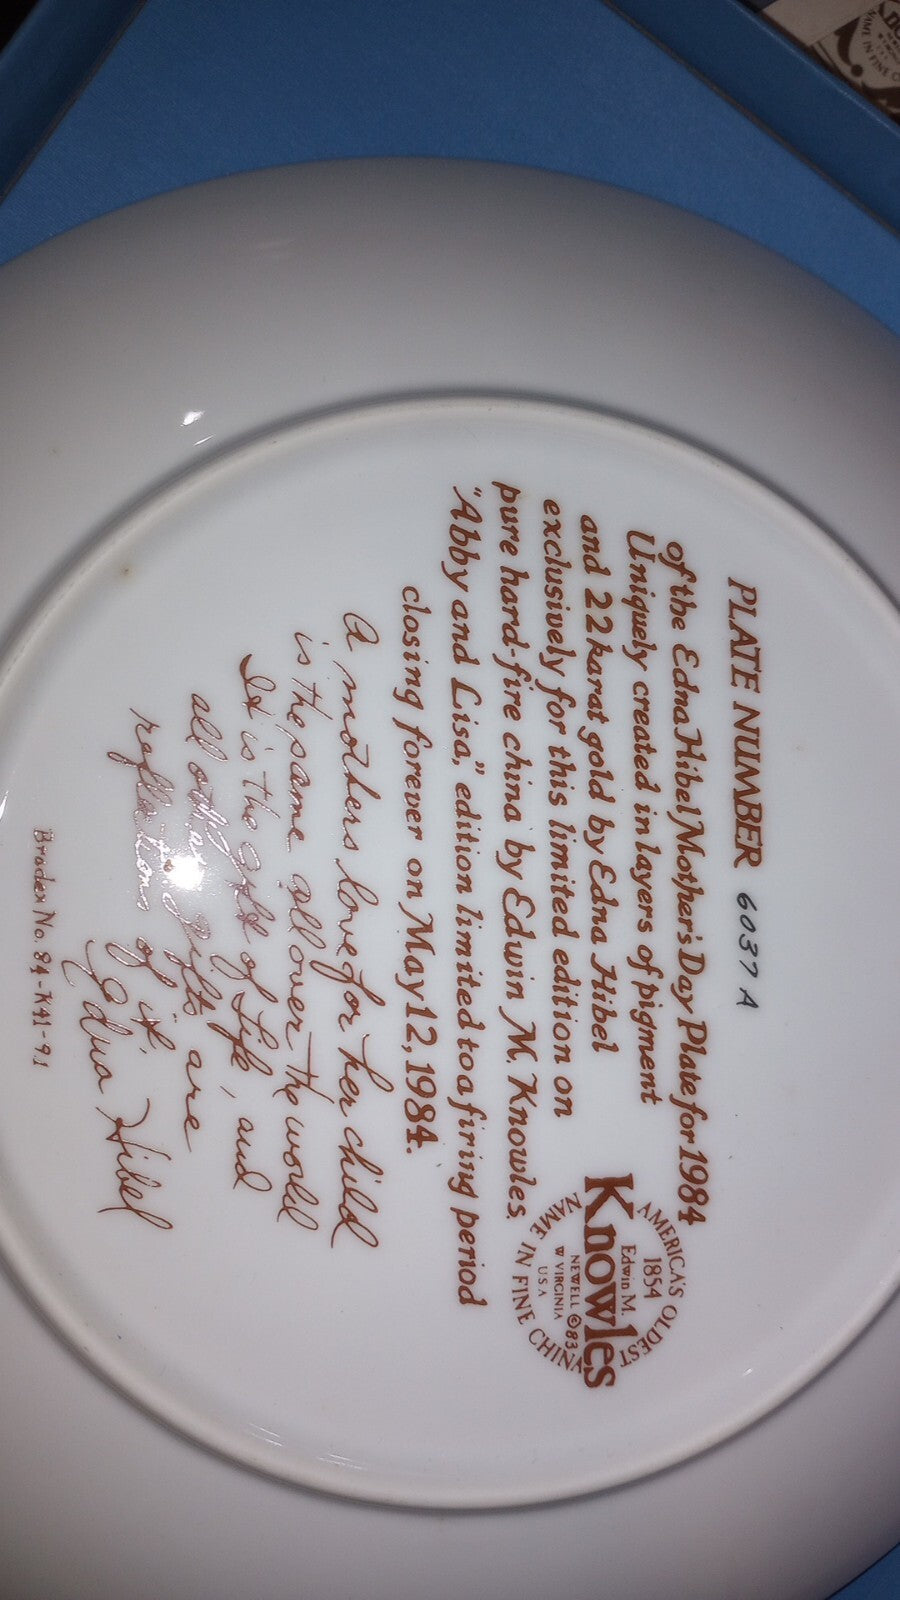 PLATE NUMBER 6037 A
of the Edna Hibel Mother's Day Plate for 1984
Uniquely created in layers of pigment
and 22 karat gold by Edna Hibel
exclusively for this limited edition on
pure hard-fire china by Edwin M. Knowles.
"Abby and Lisa," edition limited to a firing period
closing forever on May 12, 1984.
A mothers love for her child
is the same all over the world
It is the gift of life, and
all other gifts are
reflections of it.
Edna Hibel
Bradex No. 84-K41-9.1
AMERICA'S OLDEST
1854
Edwin M.
Knowles
NEWELL ©83
W VIRGINIA
USA
NAME IN FINE CHINA
NAME IN FINE